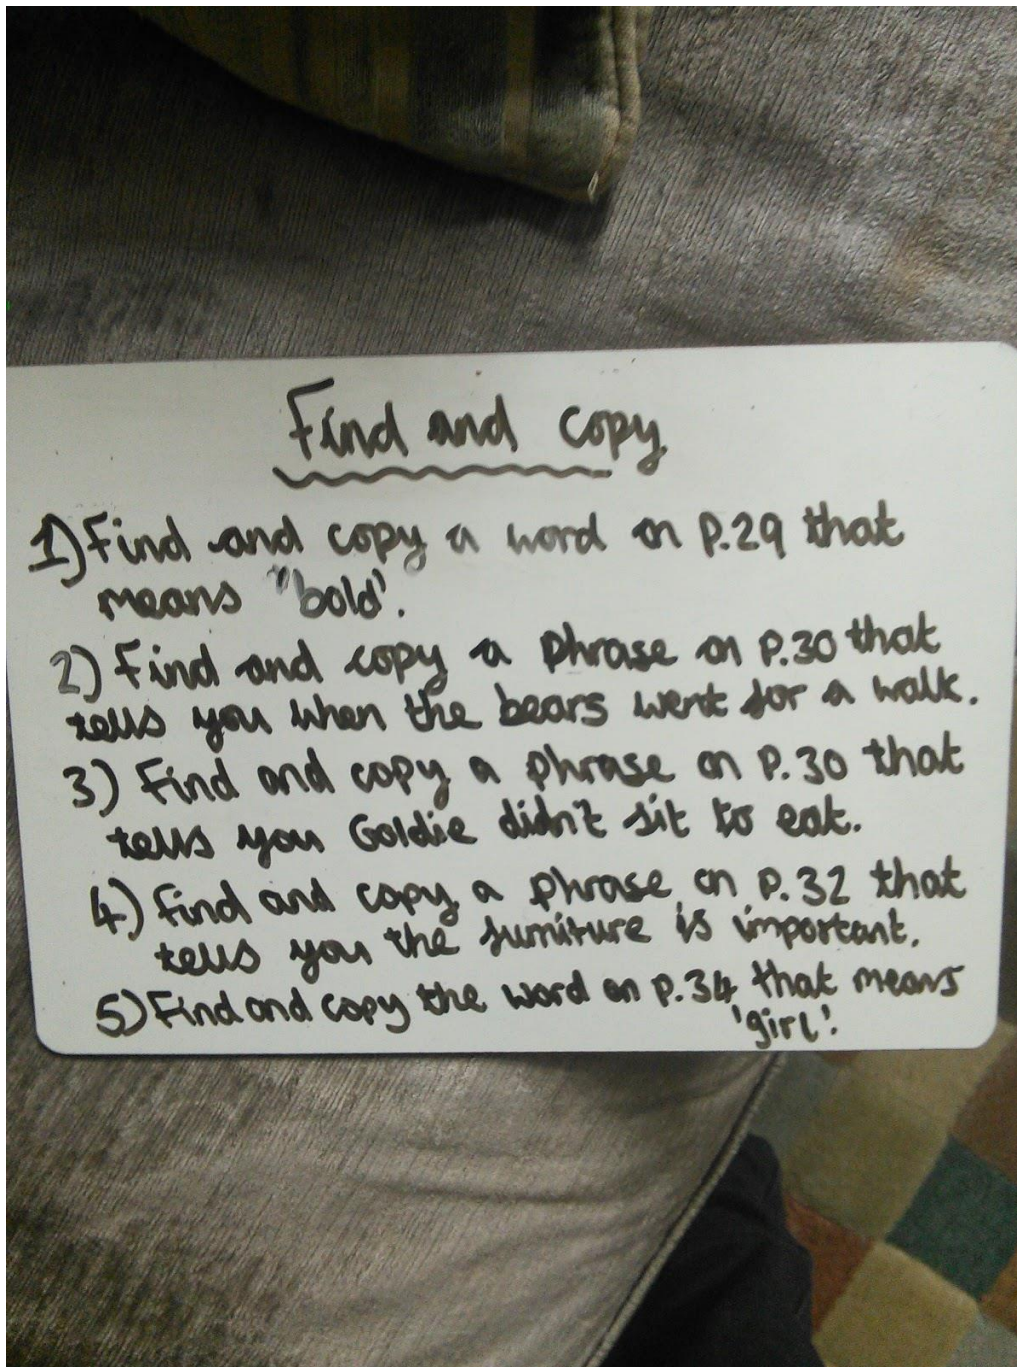 Find and copy
1) Find and copy a word on P.29 that
means "bold'.
2) Find and copy a phrase on P.30 that
tells you when the bears went for a walk.
3) Find and copy a phrase on P.30 that
tells you Goldie didn't sit to eat.
4) Find and copy a phrase on P.32 that
tells you the furniture is important.
5) Find and copy the word on p.34 that means
'girl'.